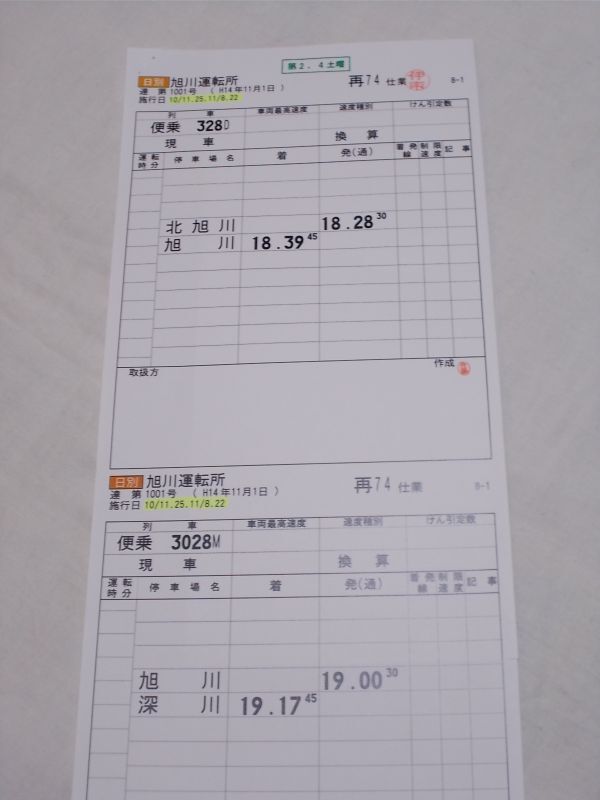 第2.4土曜
日別 旭川運転所 再74 仕業 8-1
達 第1001号 ( H14年11月1日 )
施行日 10/11.25.11/8.22
列 車 車両最高速度 速度種別 けん引定数
便乗 328D
現 車 換 算
運転時分 停車場名 着 発(通) 着発線 制限速度 記事
北旭川 18.28 30
旭 川 18.39 45
取扱方 作成
日別 旭川運転所 再74 仕業 8-1
達 第1001号 ( H14年11月1日 )
施行日 10/11.25.11/8.22
列 車 車両最高速度 速度種別 けん引定数
便乗 3028M
現 車 換 算
運転時分 停車場名 着 発(通) 着発線 制限速度 記事
旭 川 19.00 30
深 川 19.17 45